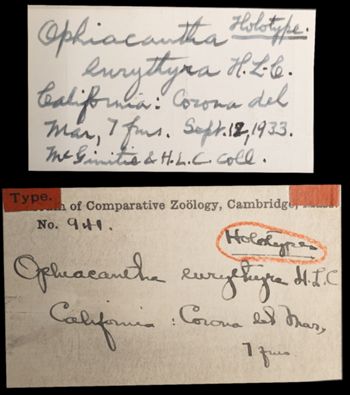 Ophiacantha Holotype.
eurythyra H.L.C.
California: Corona del
Mar, 7 fms. Sept. 12, 1933.
McGinitie & H.L.C. Coll.
Type.
of Comparative Zoölogy, Cambridge,
No. 941.
Holotypes
Ophiacantha eurythyra H.L.C
California : Corona del Mar,
7 fms